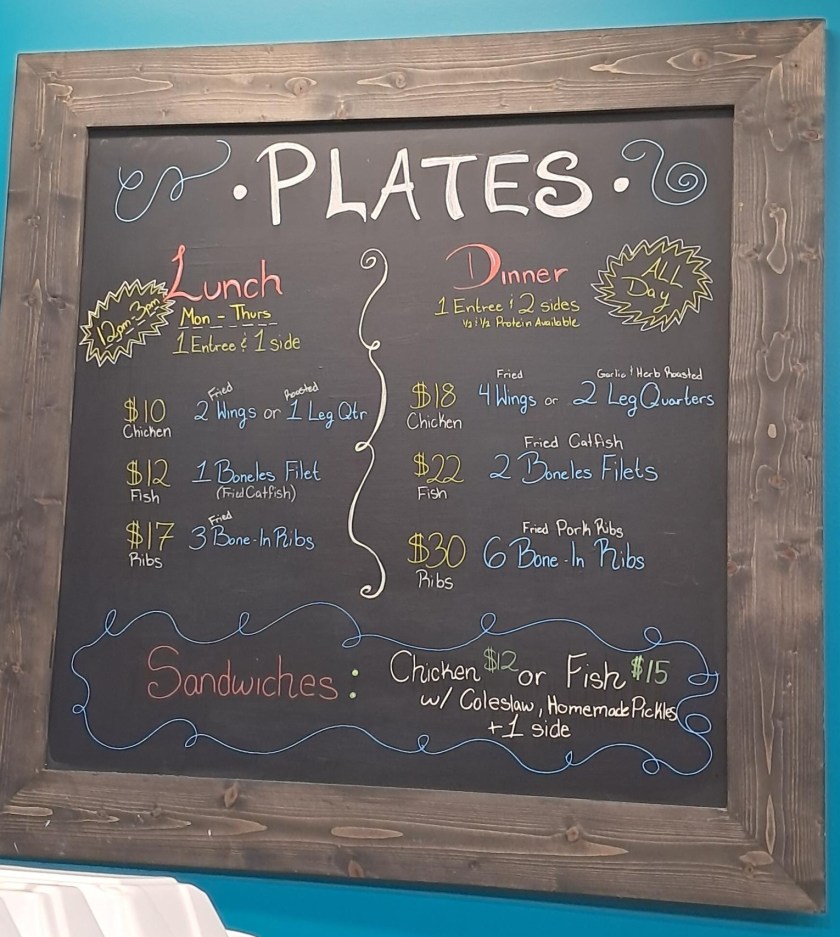 • PLATES •
Lunch
12pm-3pm
Mon - Thurs
1 Entree & 1 side
Fried Roasted
$10 2 Wings or 1 Leg Qtr
Chicken
$12 1 Boneles Filet
Fish (Fried Catfish)
Fried
$17 3 Bone-In Ribs
Ribs
Dinner
ALL
Day
1 Entree & 2 sides
1/2 & 1/2 Protein Available
Fried Garlic & Herb Roasted
$18 4 Wings or 2 Leg Quarters
Chicken
Fried Catfish
$22 2 Boneles Filets
Fish
Fried Pork Ribs
$30 6 Bone-In Ribs
Ribs
Sandwiches: Chicken $12 or Fish $15
w/ Coleslaw, Homemade Pickles
+ 1 side